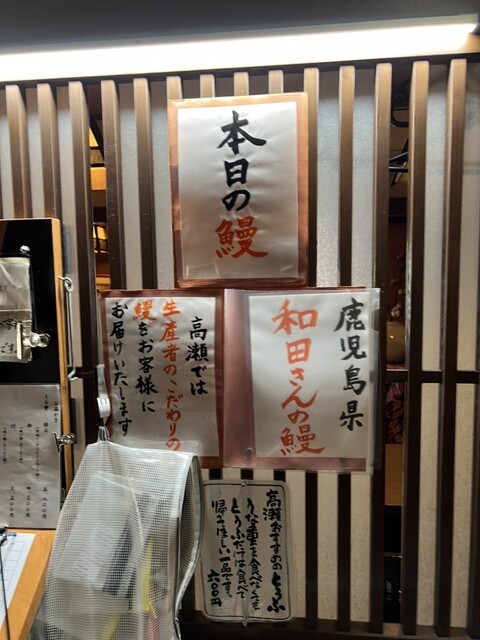 本日の鰻
鹿児島県
和田さんの鰻
高瀬では
生産者のこだわりの
鰻をお客様に
お届けいたします
高瀬おすすめのとうふ
うな重を食べなくても
とうふだけは食べて
帰ってほしい一品です。
六〇〇円